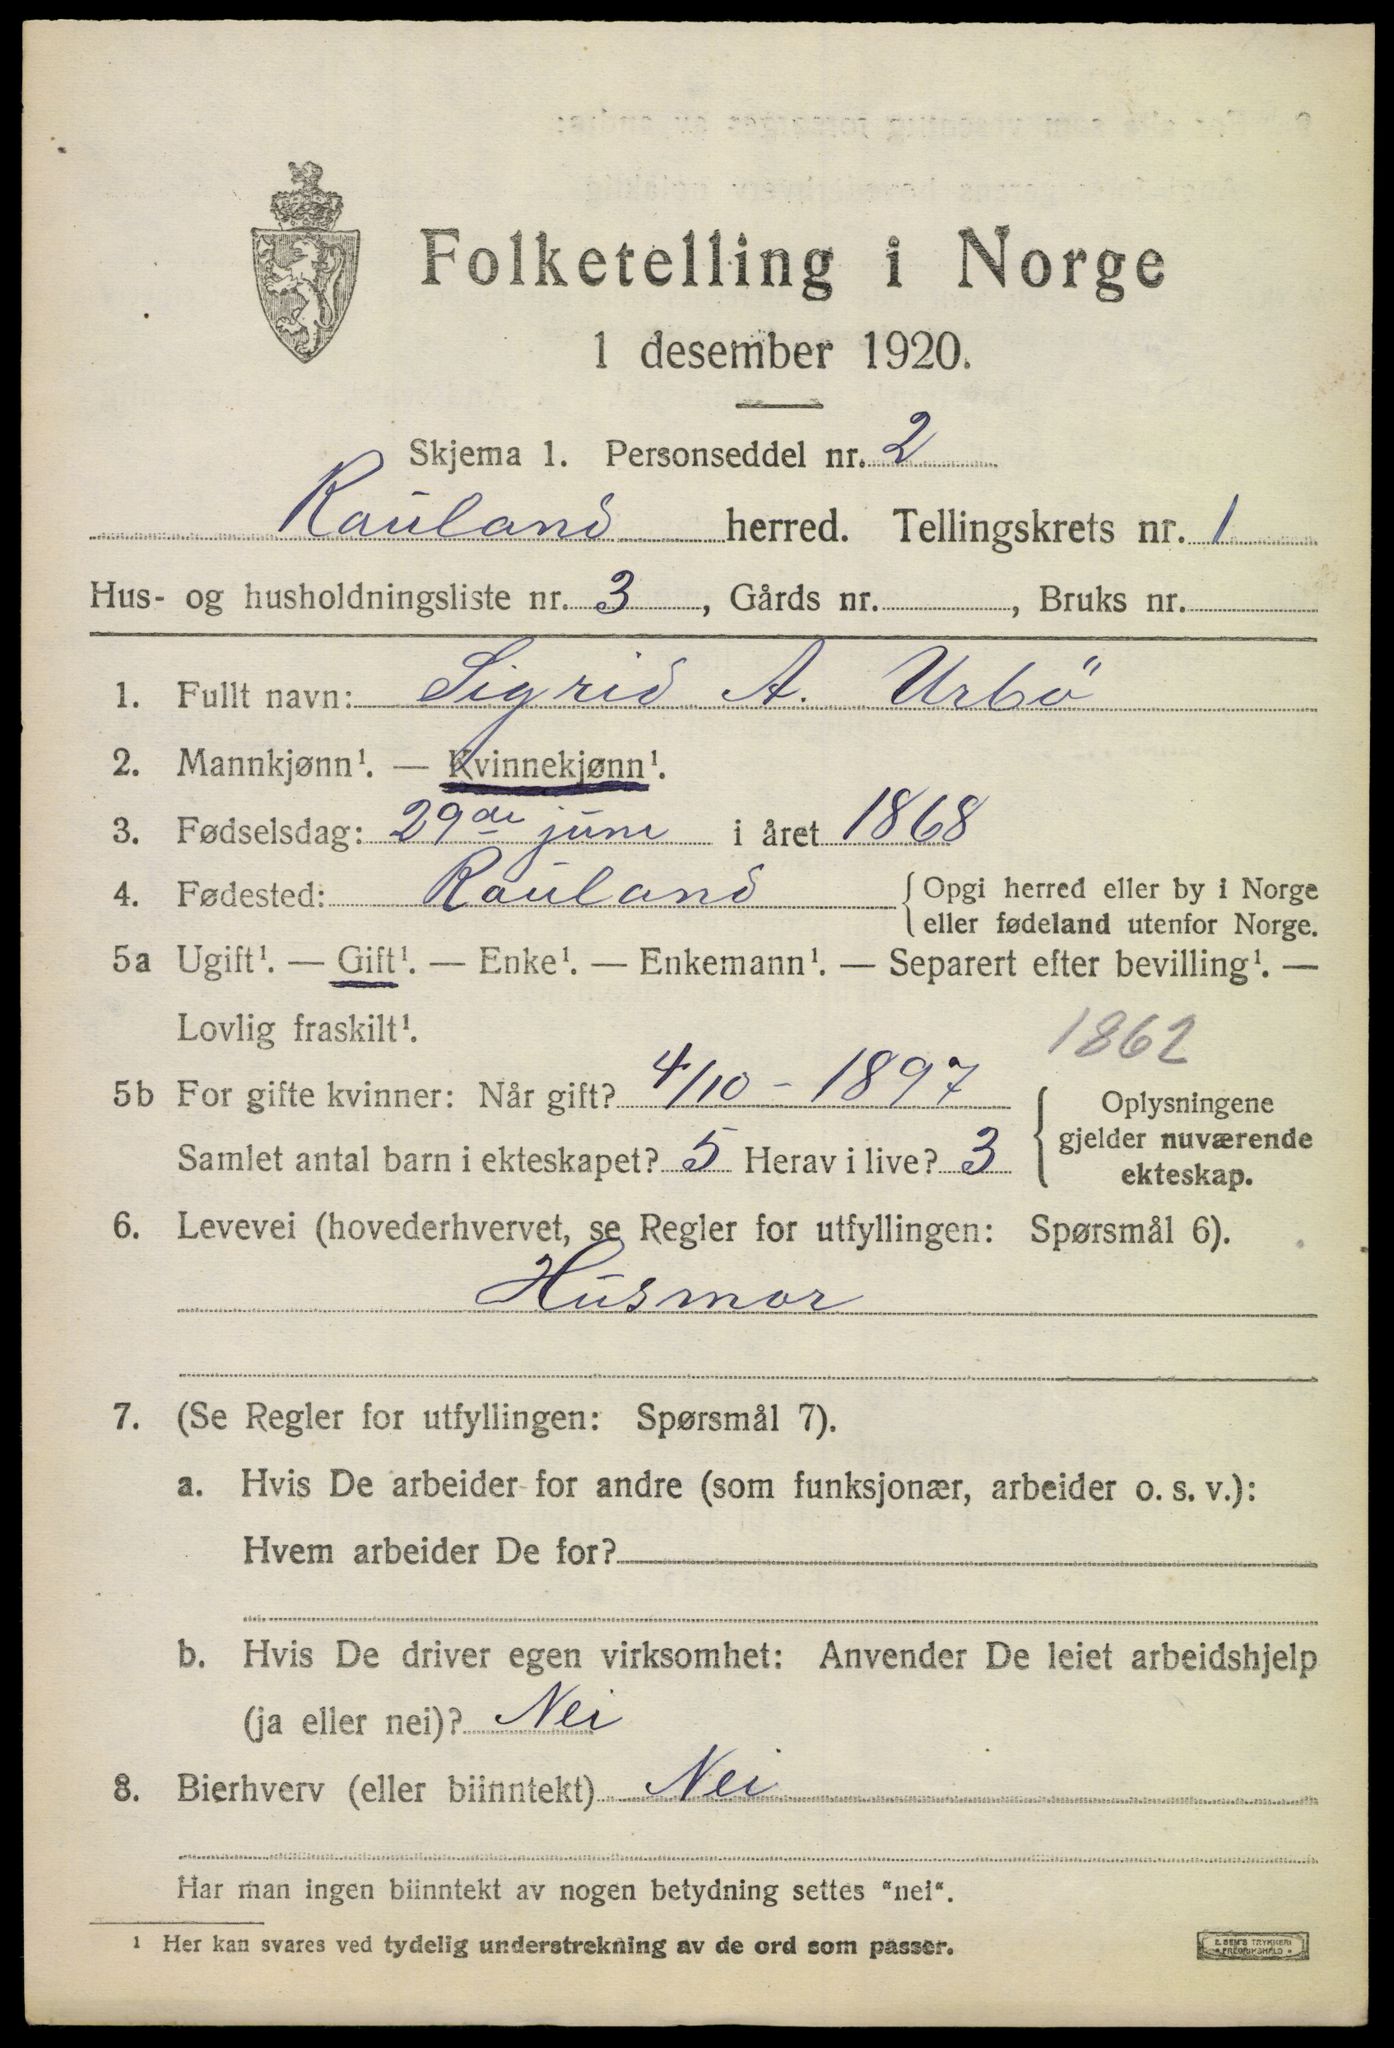 Folketelling i Norge
1 desember 1920.
Skjema 1. Personseddel nr. 2
Rauland herred. Tellingskrets nr. 1
Hus- og husholdningsliste nr. 3, Gårds nr. , Bruks nr.
1. Fullt navn: Sigrid A. Urbö
2. Mannkjønn¹. — Kvinnekjønn¹.
3. Fødselsdag: 29de juni i året 1868
4. Fødested: Rauland { Opgi herred eller by i Norge
eller fødeland utenfor Norge.
5a Ugift¹. — Gift¹. — Enke¹. — Enkemann¹. — Separert efter bevilling¹. —
Lovlig fraskilt¹.
1862
5b For gifte kvinner: Når gift? 4/10 - 1897 { Oplysningene
gjelder nuværende
Samlet antal barn i ekteskapet? 5 Herav i live? 3
ekteskap.
6. Levevei (hovederhvervet, se Regler for utfyllingen: Spørsmål 6).
Husmor
7. (Se Regler for utfyllingen: Spørsmål 7).
a. Hvis De arbeider for andre (som funksjonær, arbeider o. s. v.):
Hvem arbeider De for?
b. Hvis De driver egen virksomhet: Anvender De leiet arbeidshjelp
(ja eller nei)? Nei
8. Bierhverv (eller biinntekt) Nei
Har man ingen biinntekt av nogen betydning settes "nei".
¹ Her kan svares ved tydelig understrekning av de ord som passer.
E. SEM'S TRYKKERI
FREDRIKSHALD